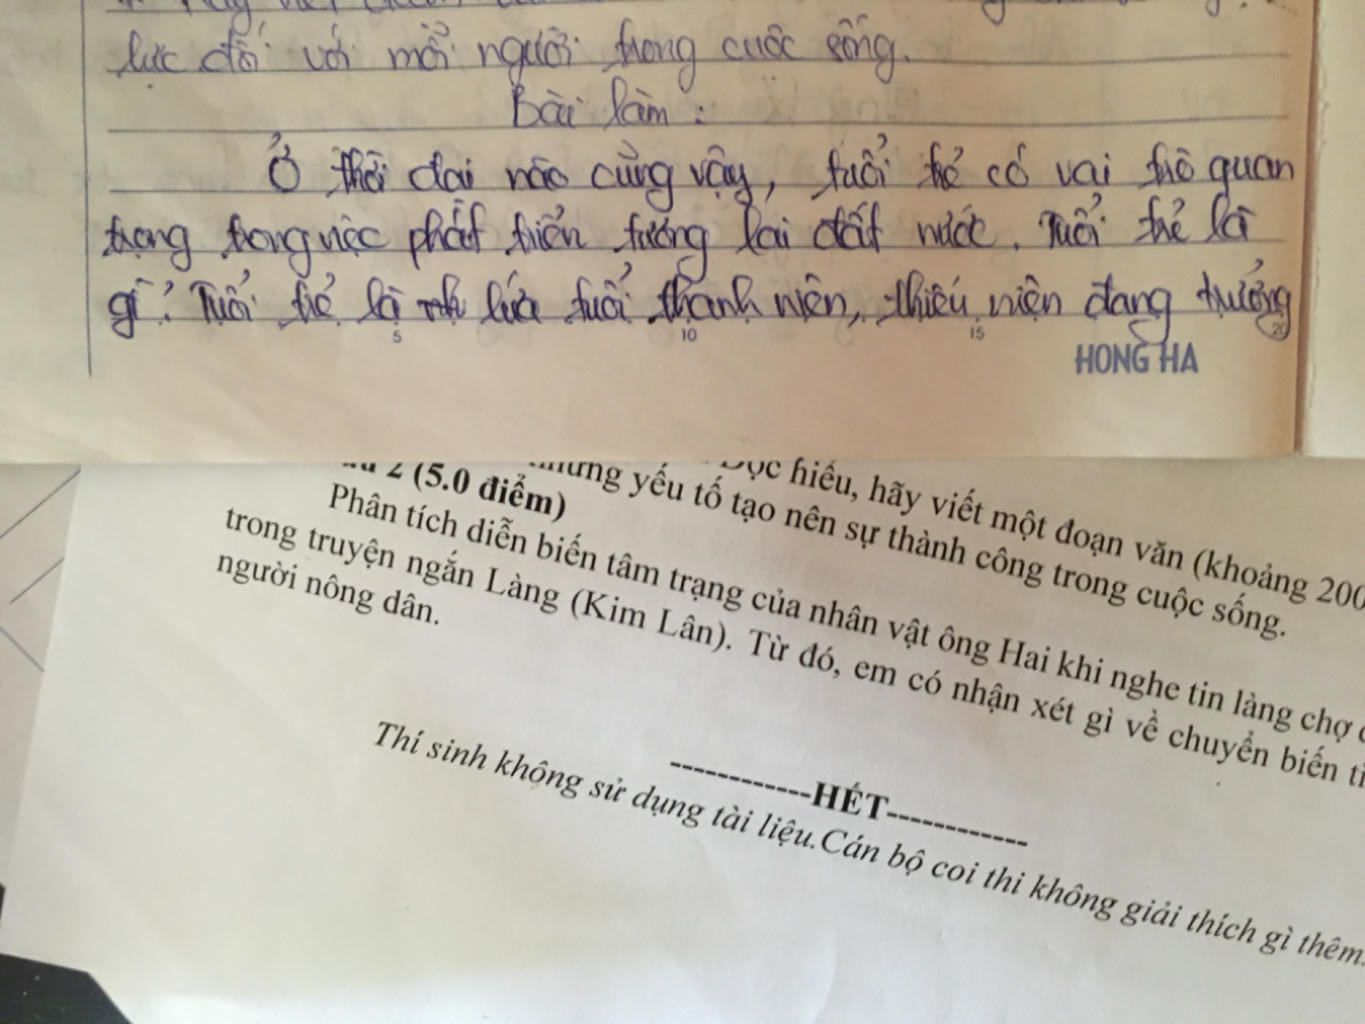 lực đối với mỗi người trong cuộc sống.
Bài làm:
Ở thời đại nào cũng vậy, tuổi trẻ có vai trò quan
trọng trong việc phát triển tương lai đất nước. Tuổi trẻ là
gì? Tuổi trẻ là lứa tuổi thanh niên, thiếu niên đang trưởng
5 10 15 20
HONG HA
Đọc hiểu, hãy viết một đoạn văn (khoảng 200
những yếu tố tạo nên sự thành công trong cuộc sống.
2 (5.0 điểm)
Phân tích diễn biến tâm trạng của nhân vật ông Hai khi nghe tin làng chợ
trong truyện ngắn Làng (Kim Lân). Từ đó, em có nhận xét gì về chuyển biến
người nông dân.
------------HẾT------------
Thí sinh không sử dụng tài liệu.Cán bộ coi thi không giải thích gì thêm.